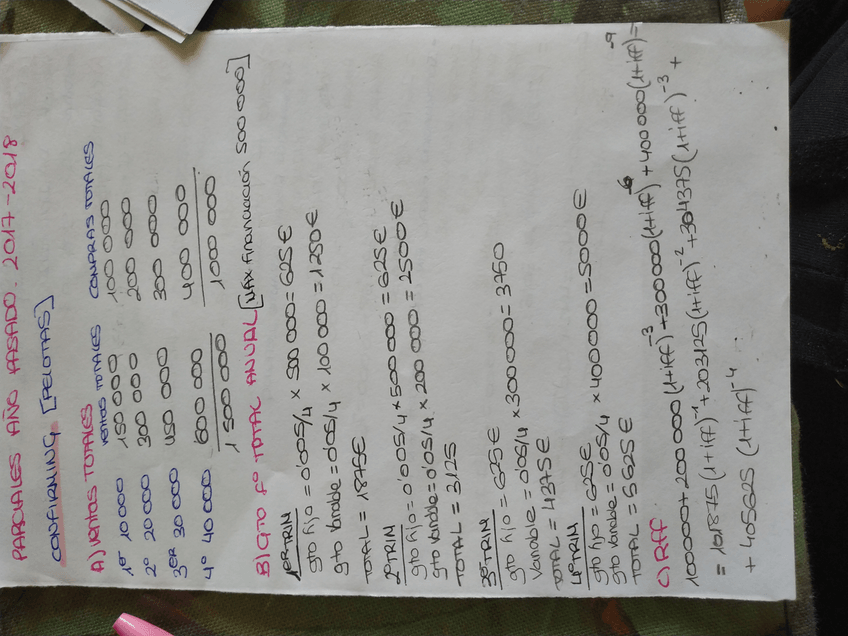 PARCIALES AÑO PASADO. 2017-2018
CONFIRMING [PELOTAS]
A) VENTAS TOTALES
ventas TOTALES COMPRAS TOTALES
1er 10 000 150 000 100 000
2º 20 000 300 000 200 000
3er 30 000 450 000 300 000
4º 40 000 600 000 400 000
1 500 000 1000 000
B) GTO Fº TOTAL ANUAL [MAX Financiación 500 000]
1er TRIM
gto fijo = 0'005/4 × 500 000 = 625€
gto variable = 0'05/4 × 100 000 = 1250€
TOTAL = 1875€
2º TRIM
gto fijo = 0'005/4 × 500 000 = 625€
gto variable = 0'05/4 × 200 000 = 2500€
TOTAL = 3125
3er TRIM
gto fijo = 625€
variable = 0'05/4 × 300 000 = 3750
TOTAL = 4375€
4º TRIM
gto fijo = 625€
gto variable = 0'05/4 × 400 000 = 5000€
TOTAL = 5625€
C) Rff
100 000 + 200 000 (1+iff)^-3 + 300 000 (1+iff)^-6 + 400 000 (1+iff)^-9 =
= 101 875 (1+iff)^-1 + 203125 (1+iff)^-2 + 304375 (1+iff)^-3 +
+ 405625 (1+iff)^-4